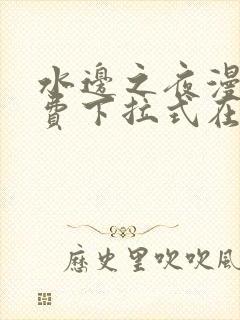 水邊之夜漫
費下拉式在
歷史里吹吹風